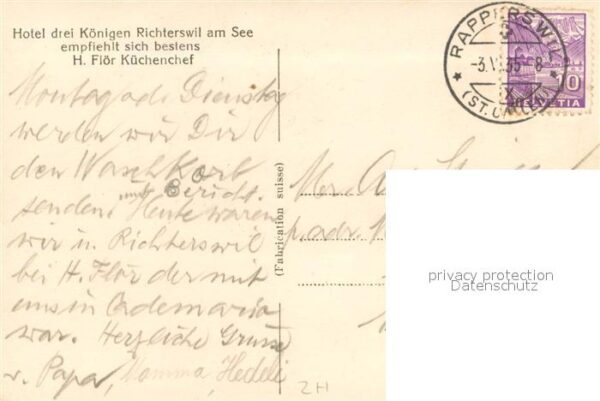 Hotel drei Königen Richterswil am See
empfiehlt sich bestens
H. Flör Küchenchef
Montag od. Dienstag
werden wir Dir
den Waschkorb
mit Bericht.
senden. Heute waren
wir in Richterswil
bei H. Flör der mit
uns in
war. Herzliche Grüsse
v. Papa, Mamma, Hedeli
(Fabrication suisse)
RAPPERSWIL
-3.V 35- 8
(ST. GALLEN)
10
HELVETIA
p.adr.
privacy protection
Datenschutz
ZH